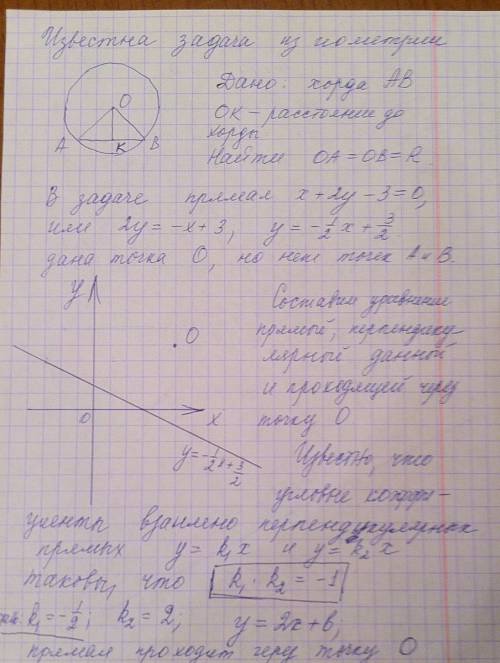 Известна задача из геометрии
O
A
K
B
Дано: хорда AB
OK – расстояние до
хорды
Найти OA = OB = R.
В задаче прямая x + 2y - 3 = 0,
или 2y = -x + 3, y = -1/2 x + 3/2
дана точка O, но нет точек A и B.
y
O
0
x
y = -1/2 x + 3/2
Составим уравнение
прямой, перпендику
лярный данной
и проходящей через
точку O
Известно, что
угловые коэффи-
циенты взаимно перпендикулярных
прямых y = k₁x и y = k₂x
таковы, что k₁ · k₂ = -1
k₁ = -1/2; k₂ = 2; y = 2x + b;
прямая проходит через точку O